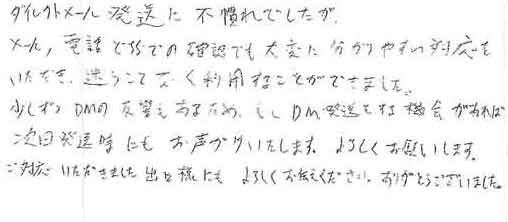 ダイレクトメール発送に不慣れでしたが、
メール、電話などでの確認でも大変に分かりやすい対応を
いただき、迷うことなく利用することができました。
少しずつDMの反響もあるため、もしDM発送をする機会があれば
次回発送時にもお声がけいたします。よろしくお願いします。
ご対応いただきました出口様にもよろしくお伝えください。ありがとうございました。